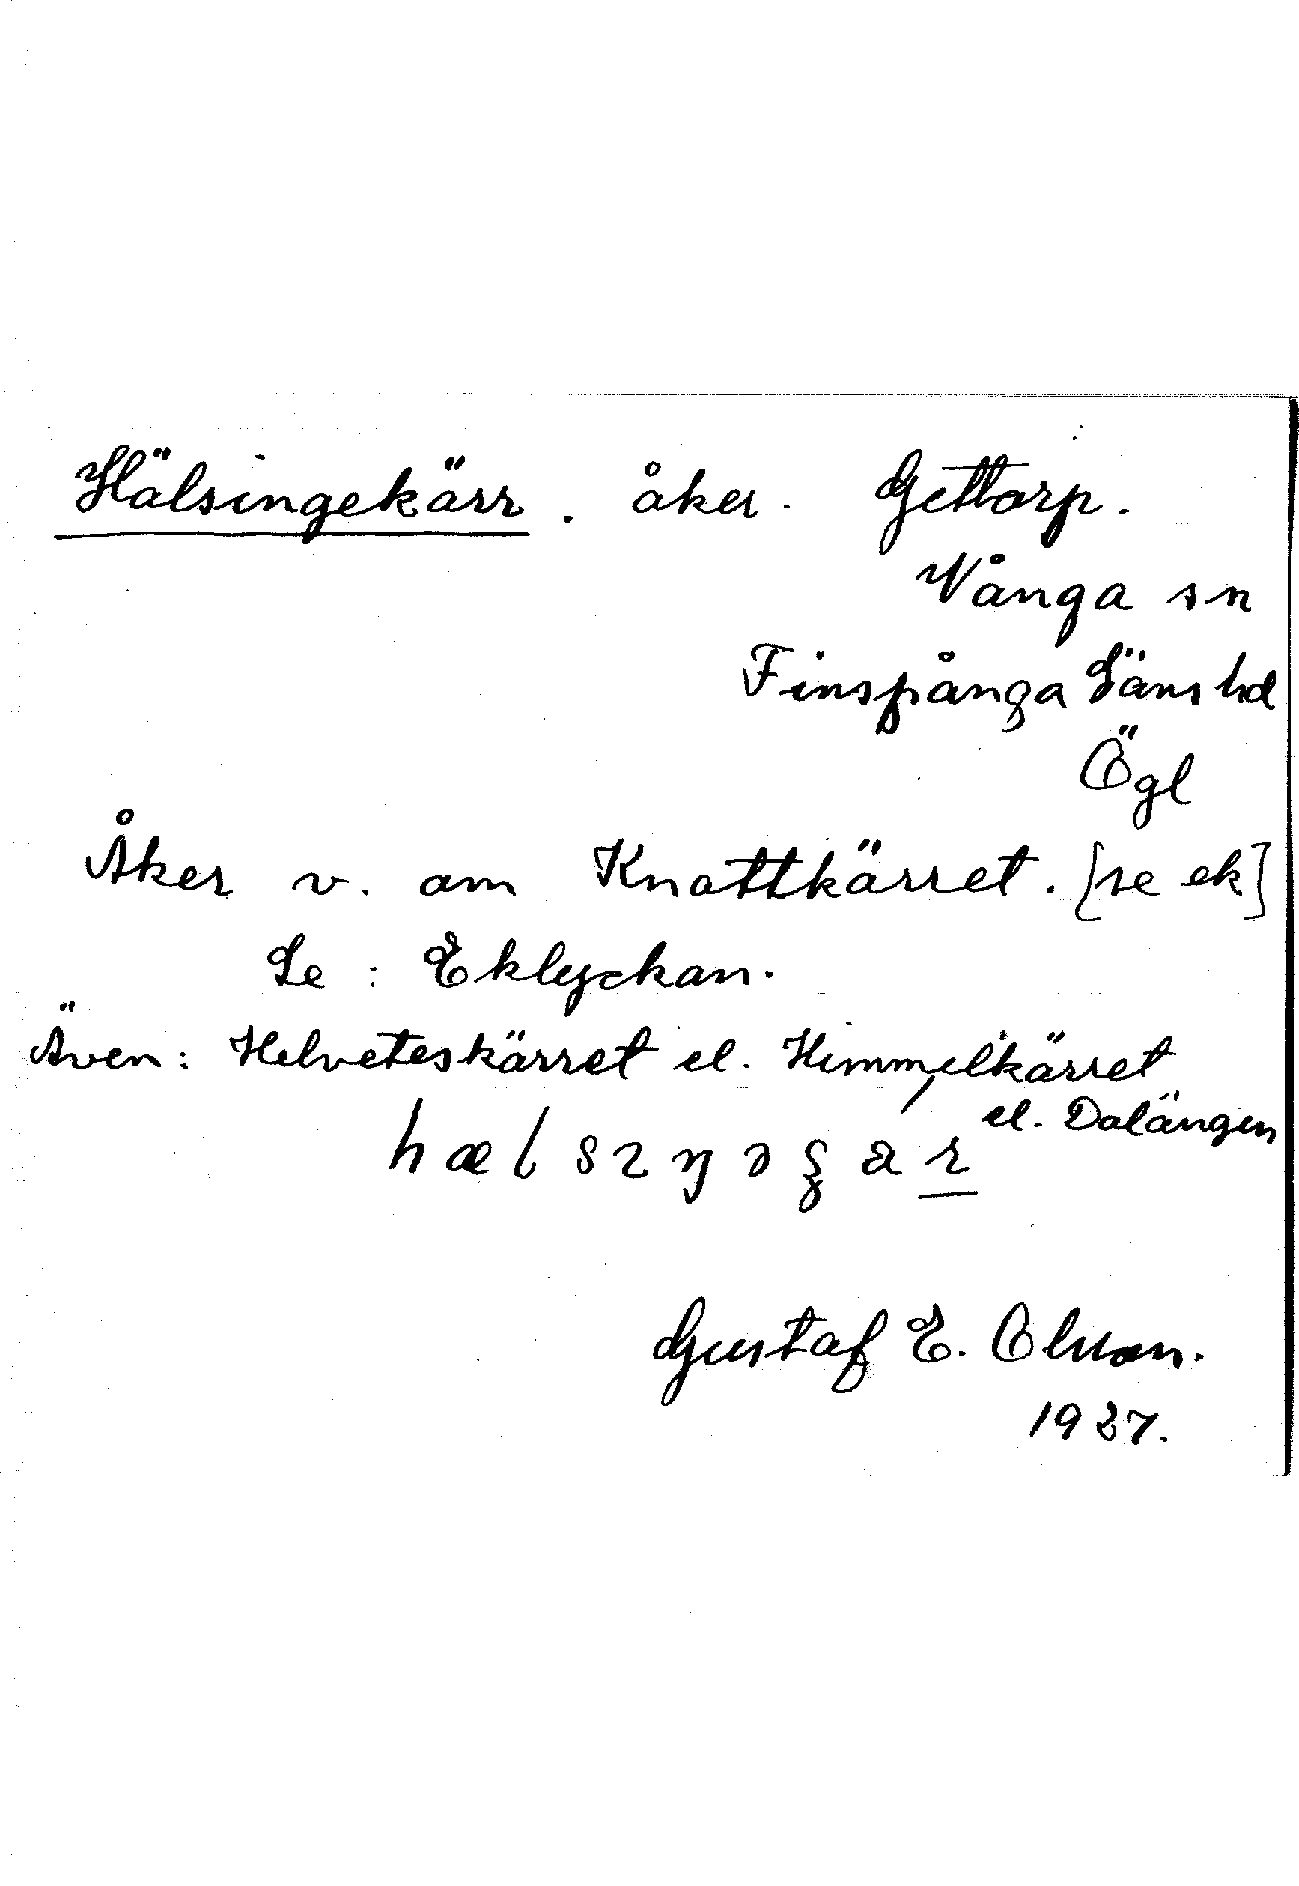 Hälsingekärr. åker. Gettorp.
Vånga sn
Finspånga Läns hd
Ögl
Åker v. om Knottkärret. [se ek]
Se : Eklyckan.
Även: Helveteskärret el. Himmelkärret
el. Dalängen
Gustaf E. Olsson.
1927.